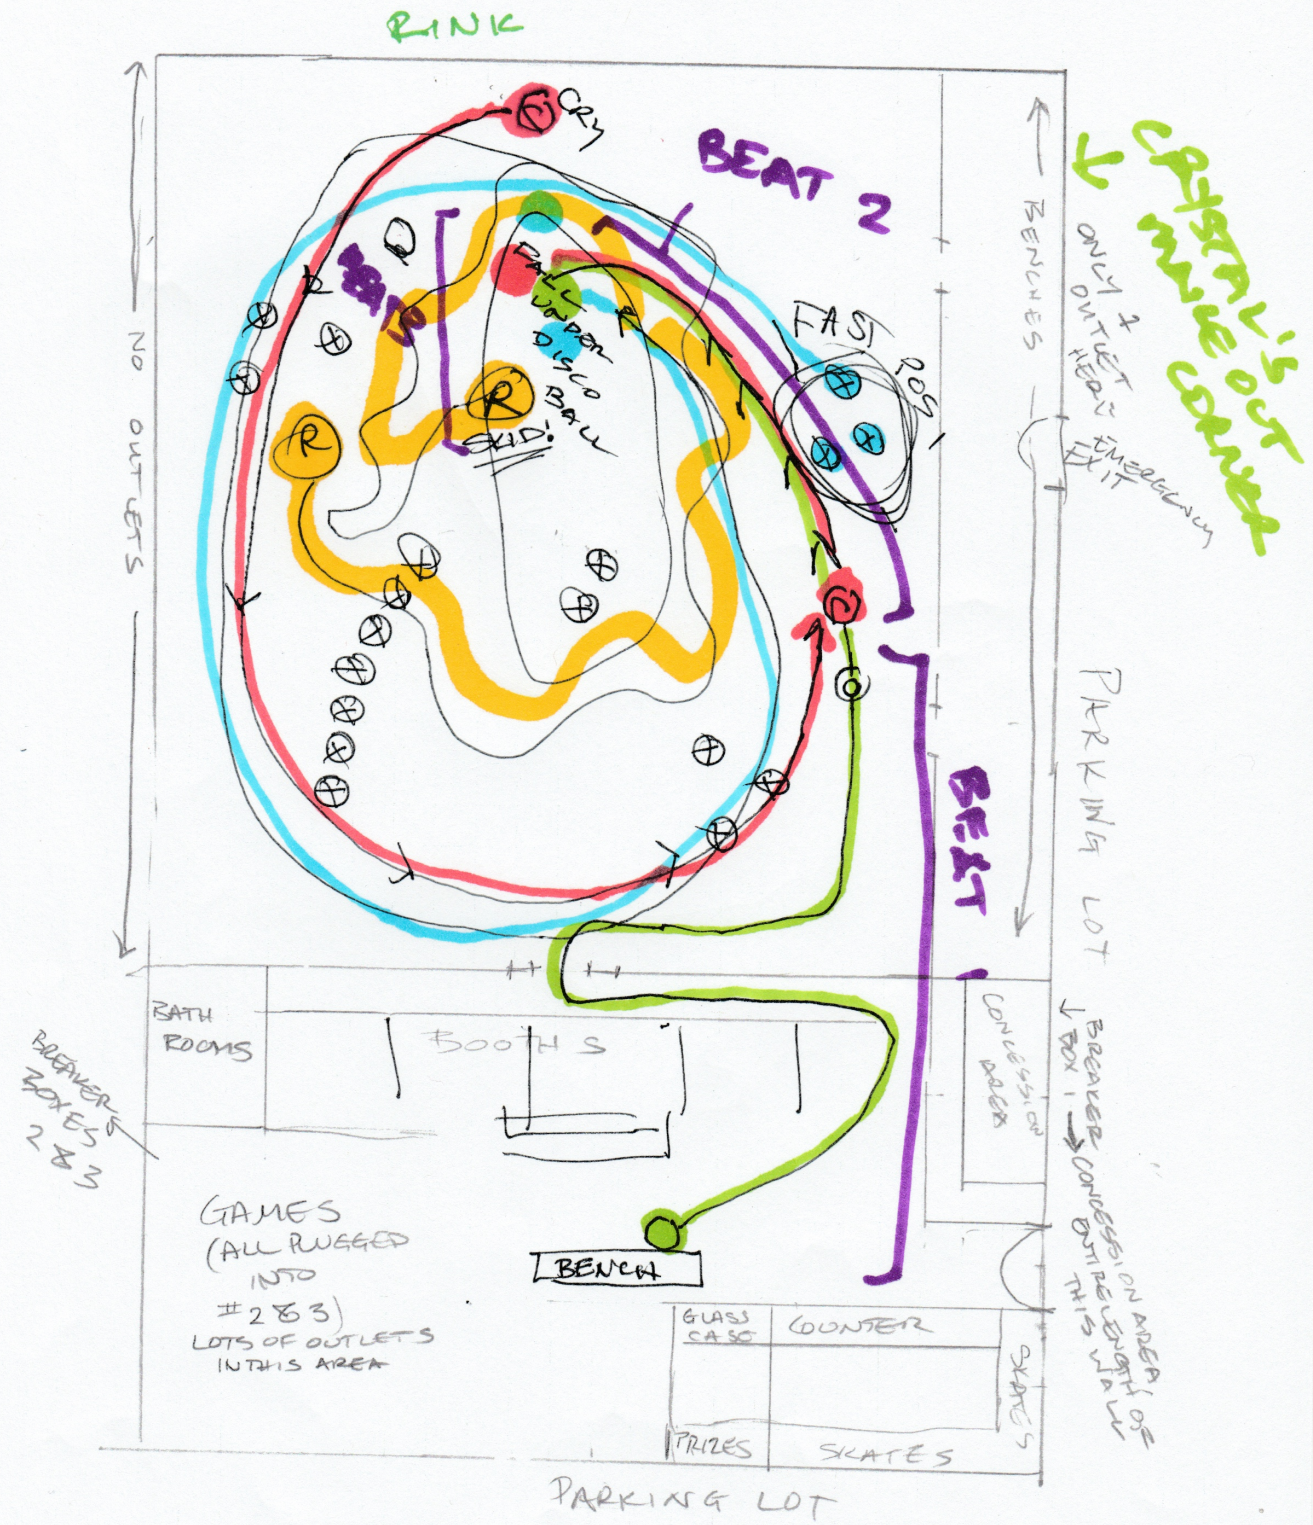 RINK
CRY
BEAT 2
NO OUTLETS
BENCHES
ONLY 1
OUTLET
HERE
EMERGENCY
EXIT
CRYSTAL'S
MAKE OUT
CORNER
FAST
POS
FALL
UNDER
DISCO
BALL
R
R
SKID!
C
C
PARKING LOT
BEAT 1
BATH
ROOMS
BOOTHS
CONCESSION
AREA
BREAKER
BOX 1 → CONCESSION AREA
ENTIRE LENGTH OF
THIS WALL
BREAKERS
BOXES
2 & 3
GAMES
(ALL PLUGGED
INTO
#2 & 3)
LOTS OF OUTLETS
IN THIS AREA
BENCH
GLASS
CASE
COUNTER
SKATES
PRIZES
SKATES
PARKING LOT